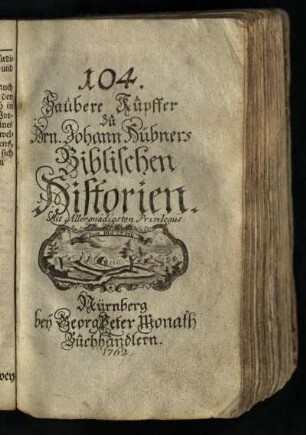 104.
Saubere Küpffer
zu
Hrn. Johann Hübners
Biblischen
Historien.
Mit Allergnädigsten Privilegiis.
Nürnberg
bey Georg Peter Monath
Buchhändlern.
1762